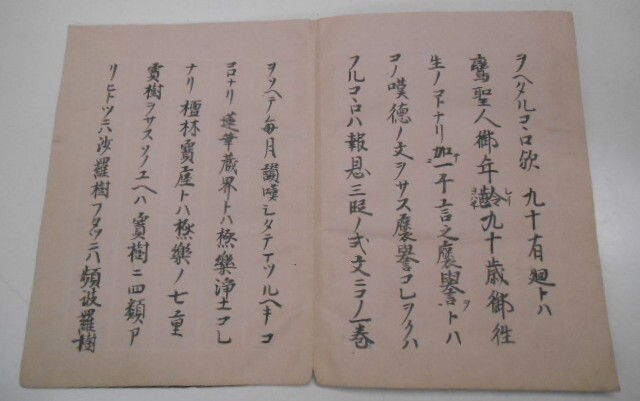 ヲヘタルコヽロ欤 九十有廻トハ
鸞聖人御年齢九十歳御往
生ノコトナリ 加一千言之褒譽トハ
コノ嘆德ノ文ヲサス褒譽コレヲクハ
フルコヽロハ報恩三 ノ式文ニコノ一巻
ヲソヘテ毎月讃嘆シタテマツルヘキコ
コロナリ 蓮華蔵界トハ極樂浄土コレ
ナリ 檀林寳座トハ極樂ノ七重
寳樹ヲサスソノユヘハ寳樹ニ四類ア
リヒトツニハ沙羅樹フタツニハ頻波羅樹